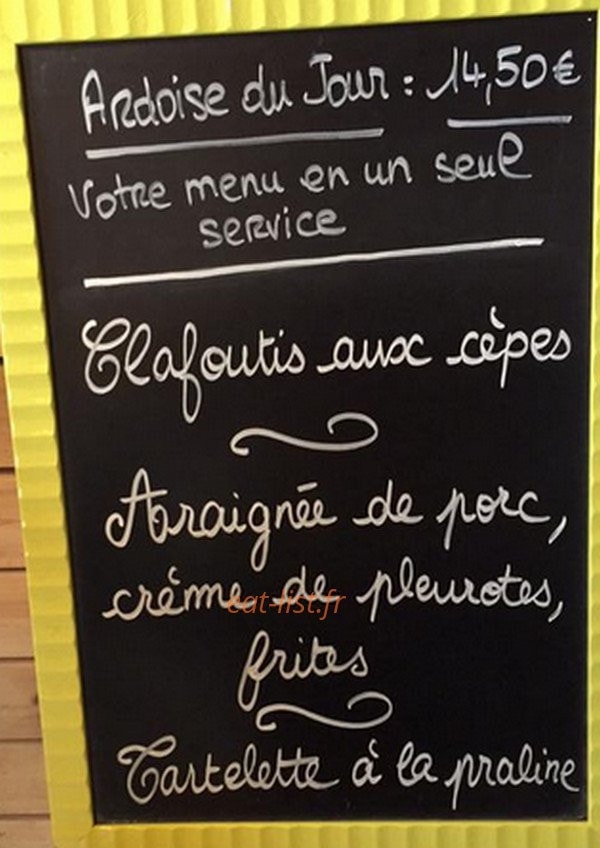 Ardoise du Jour : 14,50€
Votre menu en un seul
service
Clafoutis aux cèpes
Araignée de porc,
crème de pleurotes,
eat-list.fr
frites
Tartelette à la praline